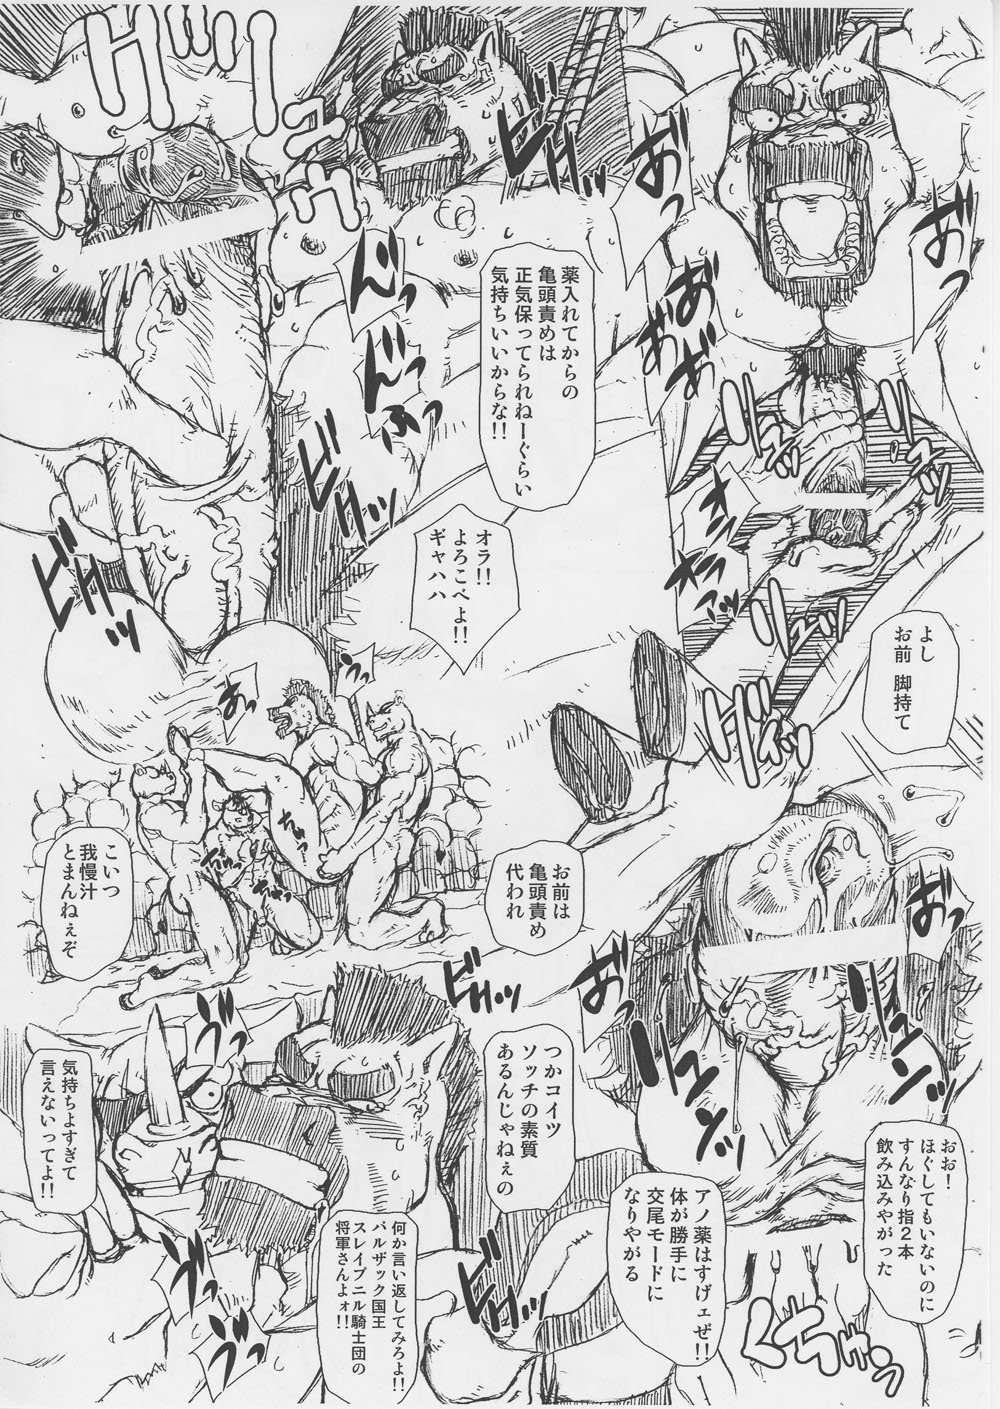 あおっ
おおっ
おおっ
リュッ
リュッ
オンッ
オンッ
ビクンッ
ビクンッ
んんっ
んんっ
ふっ
薬入れてからの
亀頭責めは
正気保ってられねーぐらい
気持ちいいからな!!
オラ!!
よろこべよ!!
ギャハハ
よし
お前 脚持て
お前は
亀頭責め
代われ
こいつ
我慢汁
とまんねぇぞ
おお!
ほぐしてもいないのに
すんなり指2本
飲み込みやがった
アノ薬はすげェぜ!!
体が勝手に
交尾モードに
なりやがる
つかコイツ
ソッチの素質
あるんじゃねぇの
何か言い返してみろよ!!
バルザック国王
スレイプニル騎士団の
将軍さんよォ!!
気持ちよすぎて
言えないってよ!!
くちゅぅ